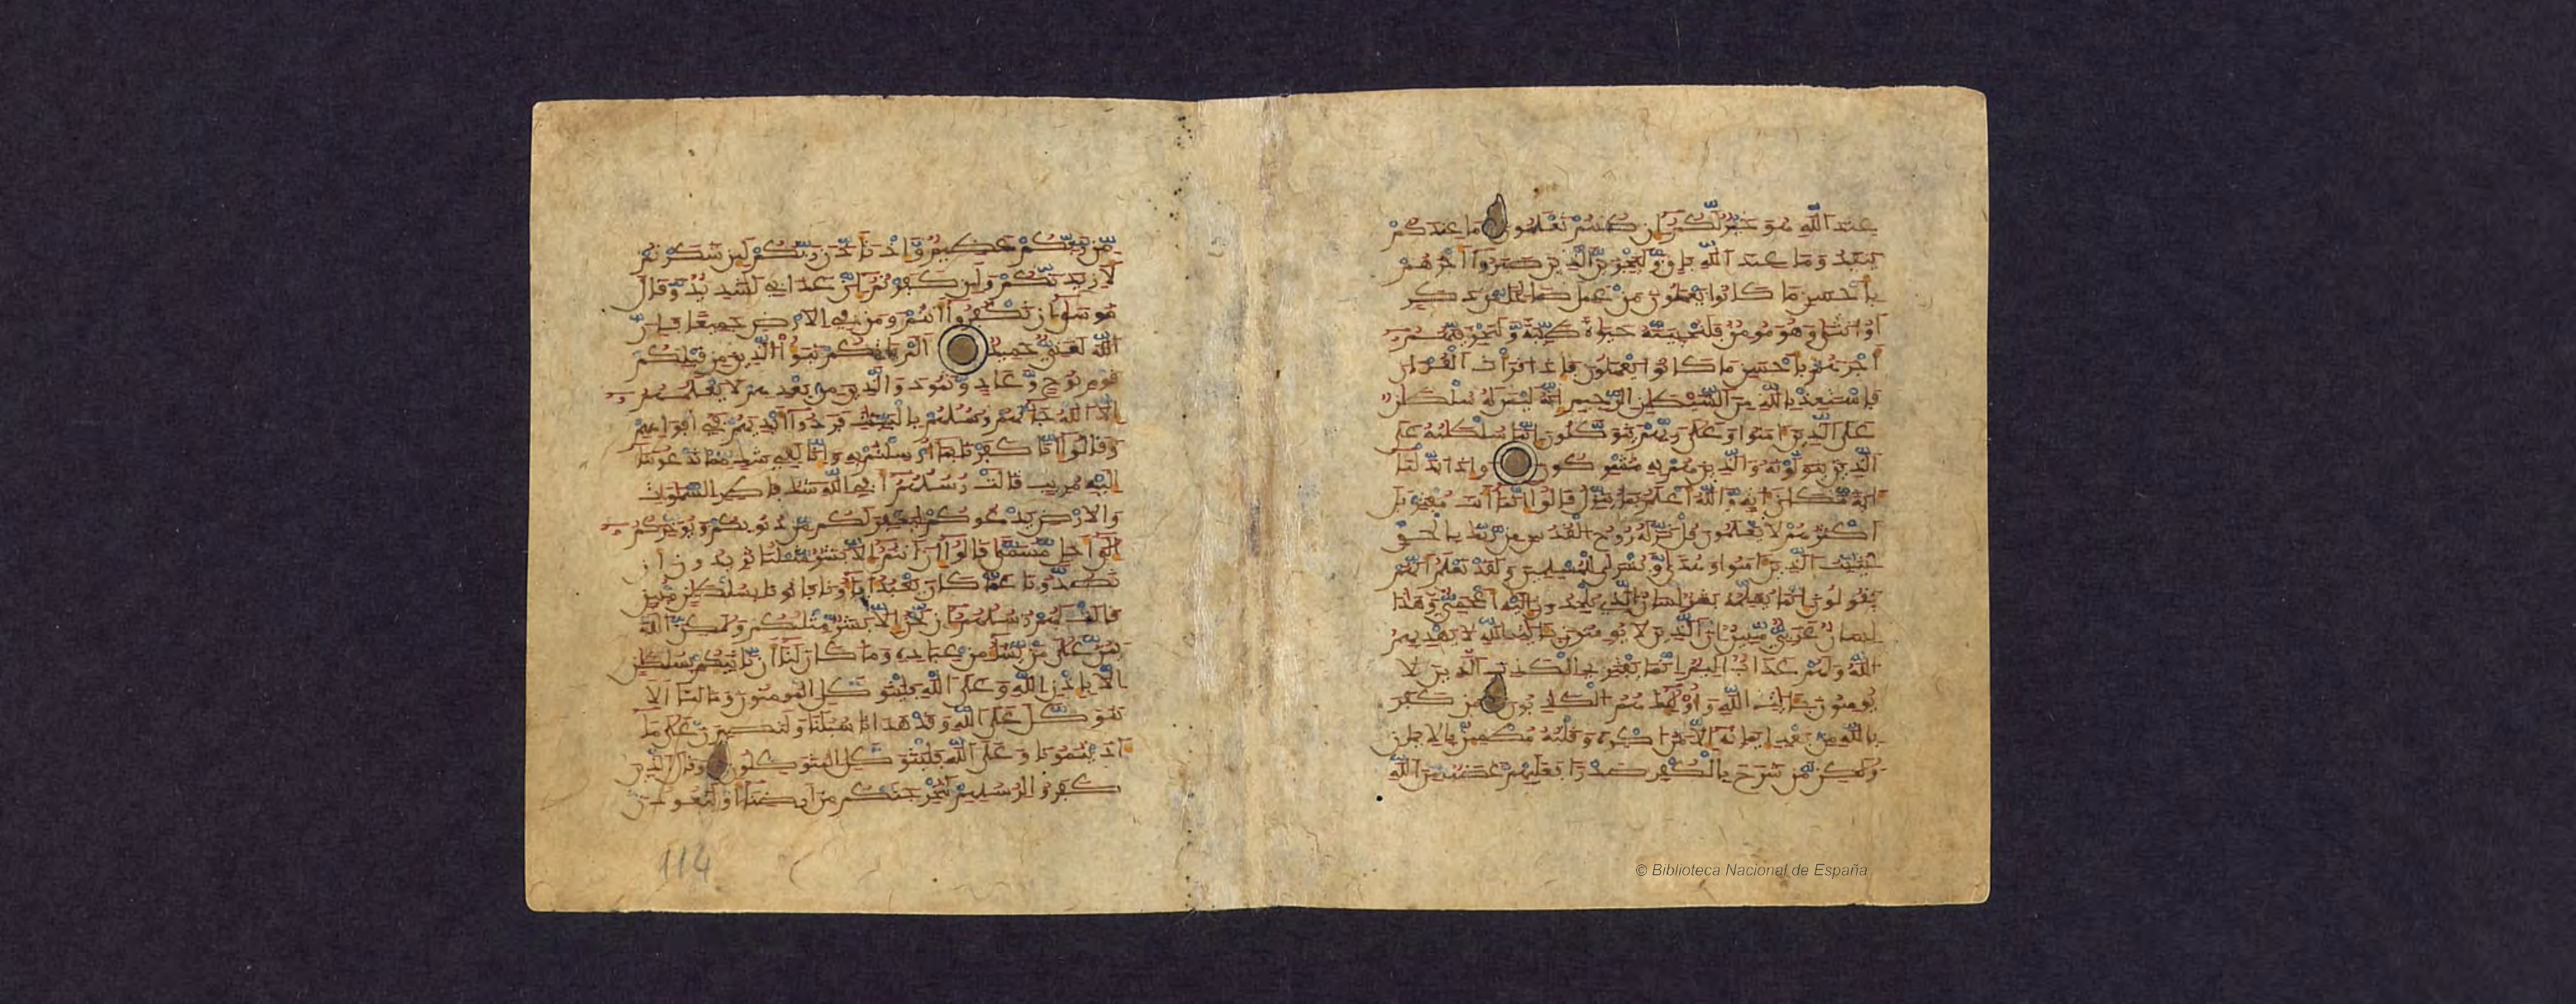 عند الله هو خير لكم إن كنتم تعلمون ما عندكم
ينفد وما عند الله باق وليجزين الذين صبروا أجرهم
بأحسن ما كانوا يعملون من عمل صالحا من ذكر
أو أنثى وهو مومن فلنحيينه حيوة طيبة ولنجزينهم
أجرهم بأحسن ما كانوا يعملون فإذا قرأت القرءان
فاستعذ بالله من الشيطن الرجيم إنه ليس له سلطن
على الذين ءامنوا وعلى ربهم يتوكلون إنما سلطنه على
الذين يتولونه والذين هم به مشركون وإذا بدلنا
ءاية مكان ءاية والله أعلم بما ينزل قالوا إنما أنت مفتر بل
أكثرهم لا يعلمون قل نزله روح القدس من ربك بالحق
ليثبت الذين ءامنوا وهدى وبشرى للمسلمين ولقد نعلم أنهم
يقولون إنما يعلمه بشر لسان الذي يلحدون إليه أعجمي وهذا
لسان عربي مبين إن الذين لا يومنون بئايت الله لا يهديهم
الله ولهم عذاب أليم إنما يفتري الكذب الذين لا
يومنون بئايت الله وأولئك هم الكذبون من كفر
بالله من بعد إيمنه إلا من أكره وقلبه مطمئن بالايمن
ولكن من شرح بالكفر صدرا فعليهم غضب من الله
من ربكم عظيم وإذ تأذن ربكم لئن شكرتم
لأزيدنكم ولئن كفرتم إن عذابي لشديد وقال
موسى إن تكفروا أنتم ومن في الارض جميعا فإن
الله لغني حميد ألم يأتكم نبؤا الذين من قبلكم
قوم نوح وعاد وثمود والذين من بعدهم لا يعلمهم
إلا الله جاءتهم رسلهم بالبينت فردوا أيديهم في أفوههم
وقالوا إنا كفرنا بما أرسلتم به وإنا لفي شك مما تدعوننا
إليه مريب قالت رسلهم أفي الله شك فاطر السموت
والارض يدعوكم ليغفر لكم من ذنوبكم ويؤخركم
إلى أجل مسمى قالوا إن أنتم إلا بشر مثلنا تريدون أن
تصدونا عما كان يعبد ءاباؤنا فاتونا بسلطن مبين
قالت لهم رسلهم إن نحن إلا بشر مثلكم ولكن الله
يمن على من يشاء من عباده وما كان لنا أن ناتيكم بسلطن
إلا بإذن الله وعلى الله فليتوكل المومنون وما لنا ألا
نتوكل على الله وقد هدانا سبلنا ولنصبرن على ما
ءاذيتمونا وعلى الله فليتوكل المتوكلون وقال الذين
كفروا لرسلهم لنخرجنكم من أرضنا أو لتعودن
114
© Biblioteca Nacional de España